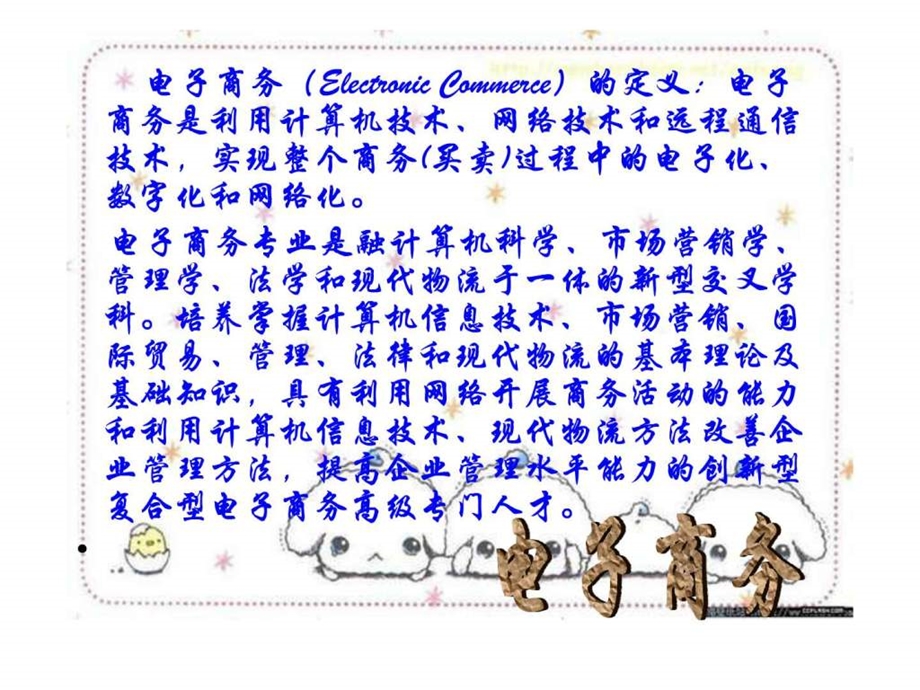 电子商务（Electronic Commerce）的定义：电子
商务是利用计算机技术、网络技术和远程通信
技术，实现整个商务(买卖)过程中的电子化、
数字化和网络化。
电子商务专业是融计算机科学、市场营销学、
管理学、法学和现代物流于一体的新型交叉学
科。培养掌握计算机信息技术、市场营销、国
际贸易、管理、法律和现代物流的基本理论及
基础知识，具有利用网络开展商务活动的能力
和利用计算机信息技术、现代物流方法改善企
业管理方法，提高企业管理水平能力的创新型
复合型电子商务高级专门人才。
电子商务